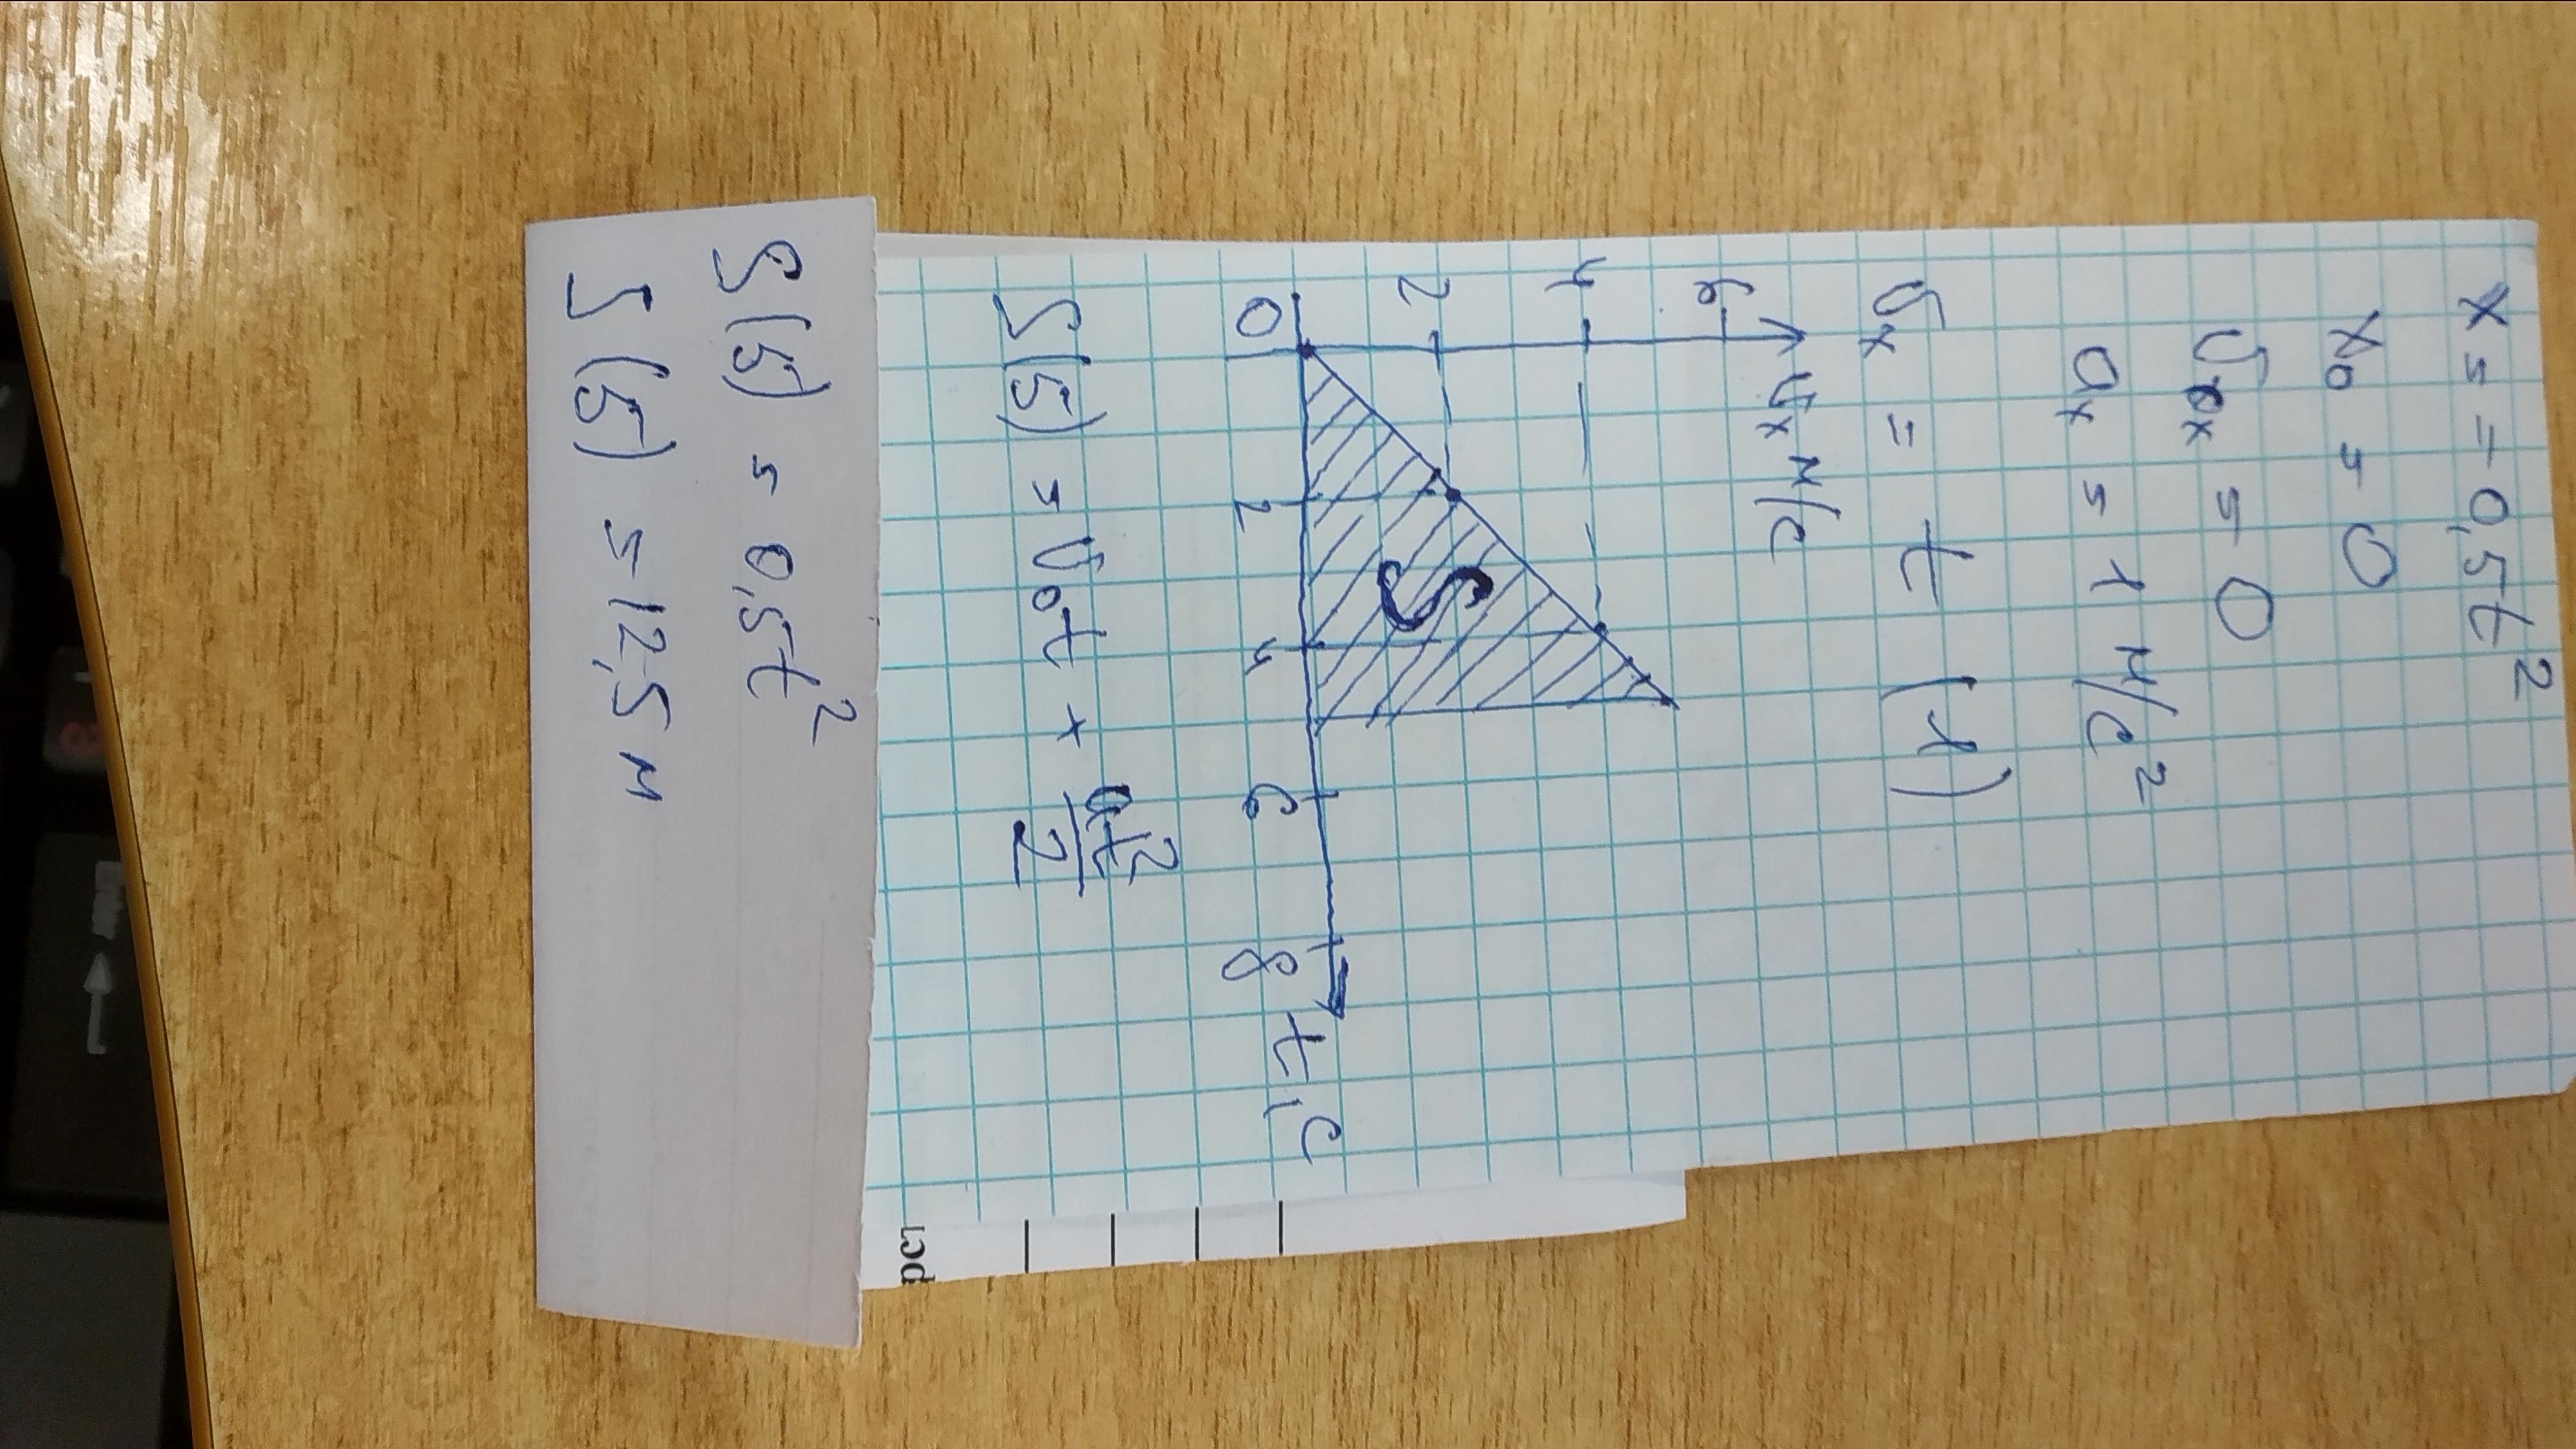 x = 0,5t²
x₀ = 0
υ₀ₓ = 0
aₓ = 1 м/с²
υₓ = t (1)
υₓ м/с
6
4
2
S
0 2 4 6 8 t, с
S(5) = υ₀t + at²/2
S(5) = 0,5t²
S(5) = 12,5 м
рст